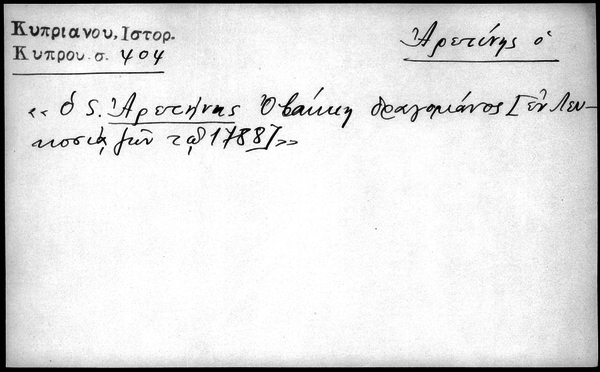 Κυπριανου, Ιστορ.
Κυπρου. σ. 404
Ἀρετίνης ὁ
«ὁ S. Ἀρετίνης Ὀβάκη δραγομάνος [ἐν Λευ-
κοσίᾳ ζῶν τῷ 1788]»